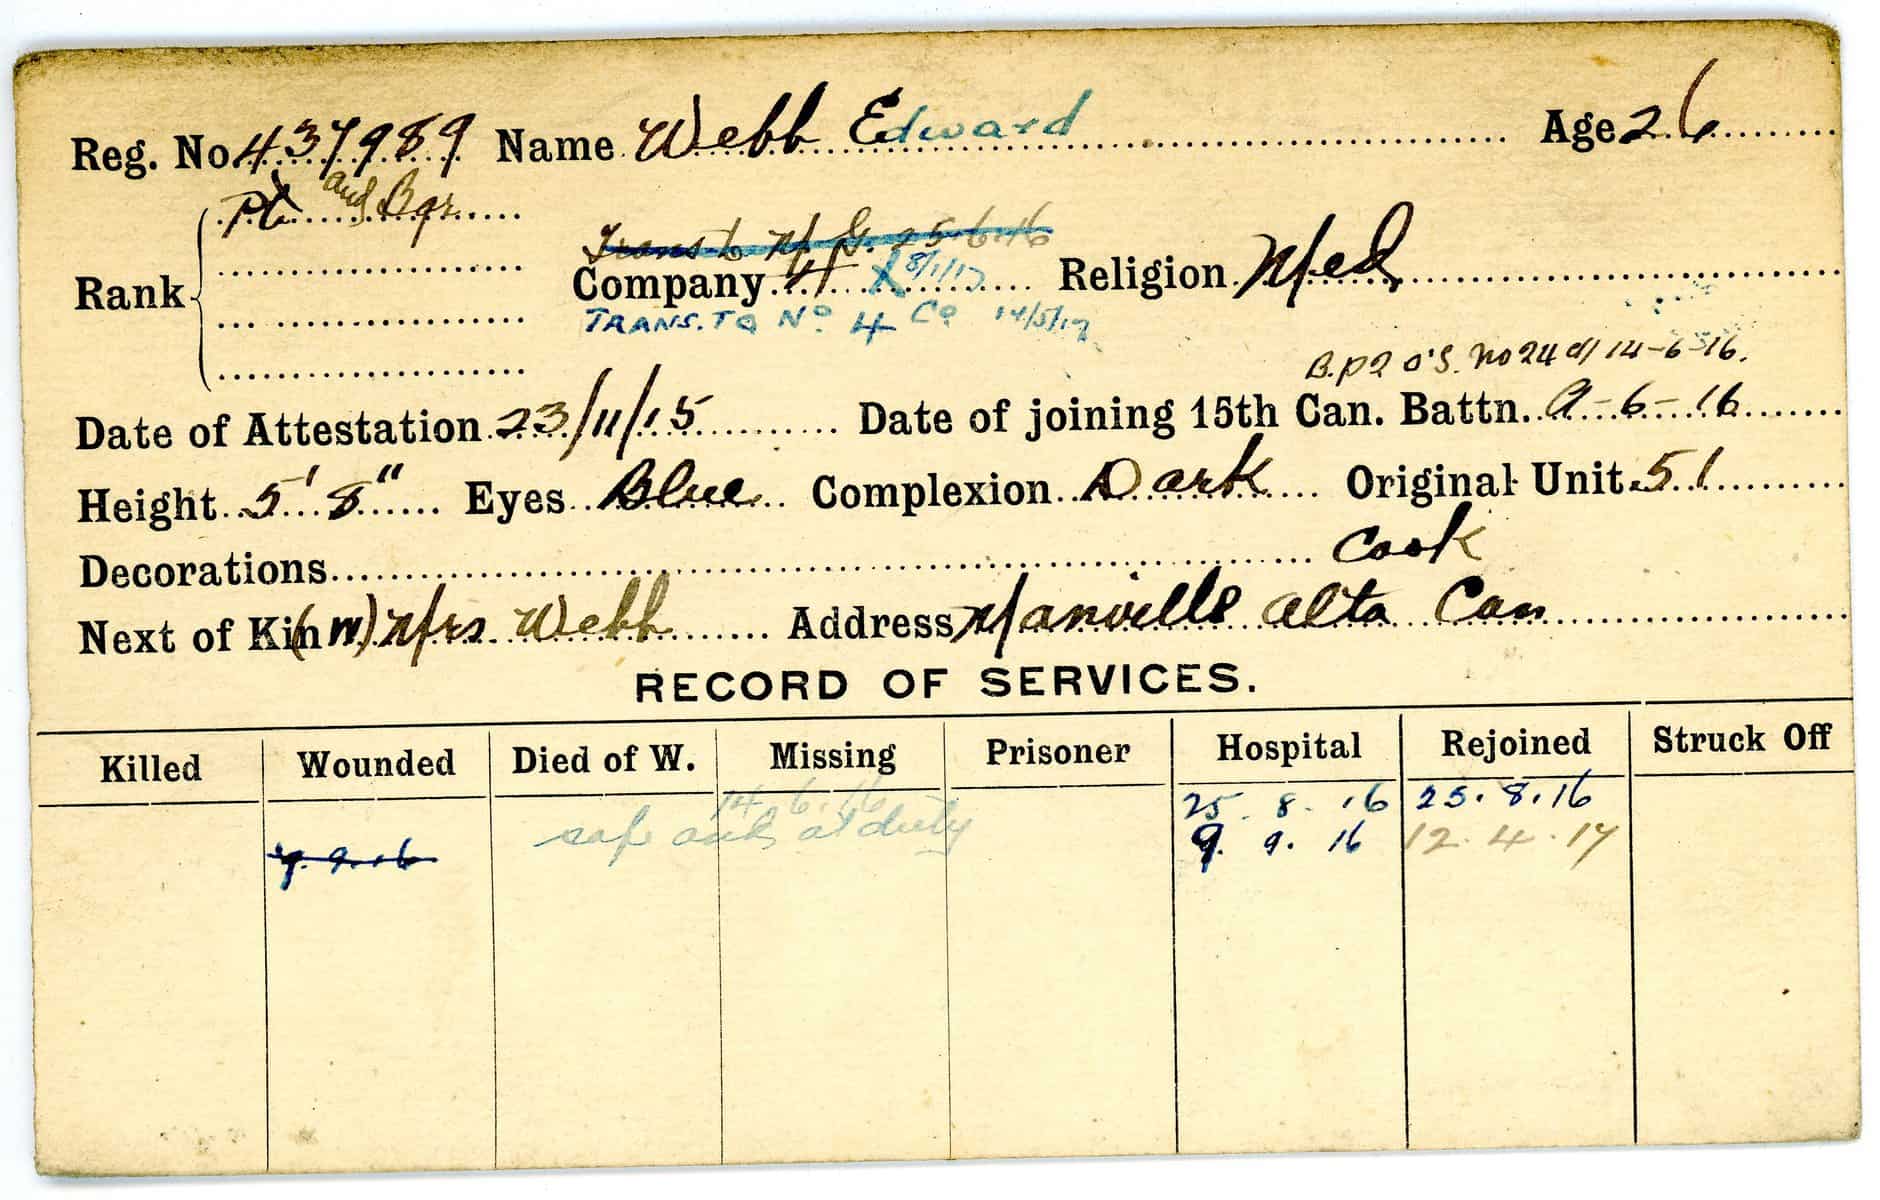 Reg. No. 437989 Name Webb Edward Age 26
Pte and Bgr
Trans to M. G. 25.6.16
Rank Company 4 8/1/17 Religion Med
TRANS. TO No 4 Co 14/5/17
O'S. No 24 14-6-16.
Date of Attestation 23/11/15 Date of joining 15th Can. Battn. 9-6-16
Height 5' 8" Eyes Blue Complexion Dark Original Unit 51
Decorations Cook
Next of Kin (W) Mrs Webb Address Manville Alta Can
RECORD OF SERVICES.
Killed Wounded Died of W. Missing Prisoner Hospital Rejoined Struck Off
14.6.16 25.8.16 25.8.16
safe and at duty 9.9.16 12.4.17
9.9.16